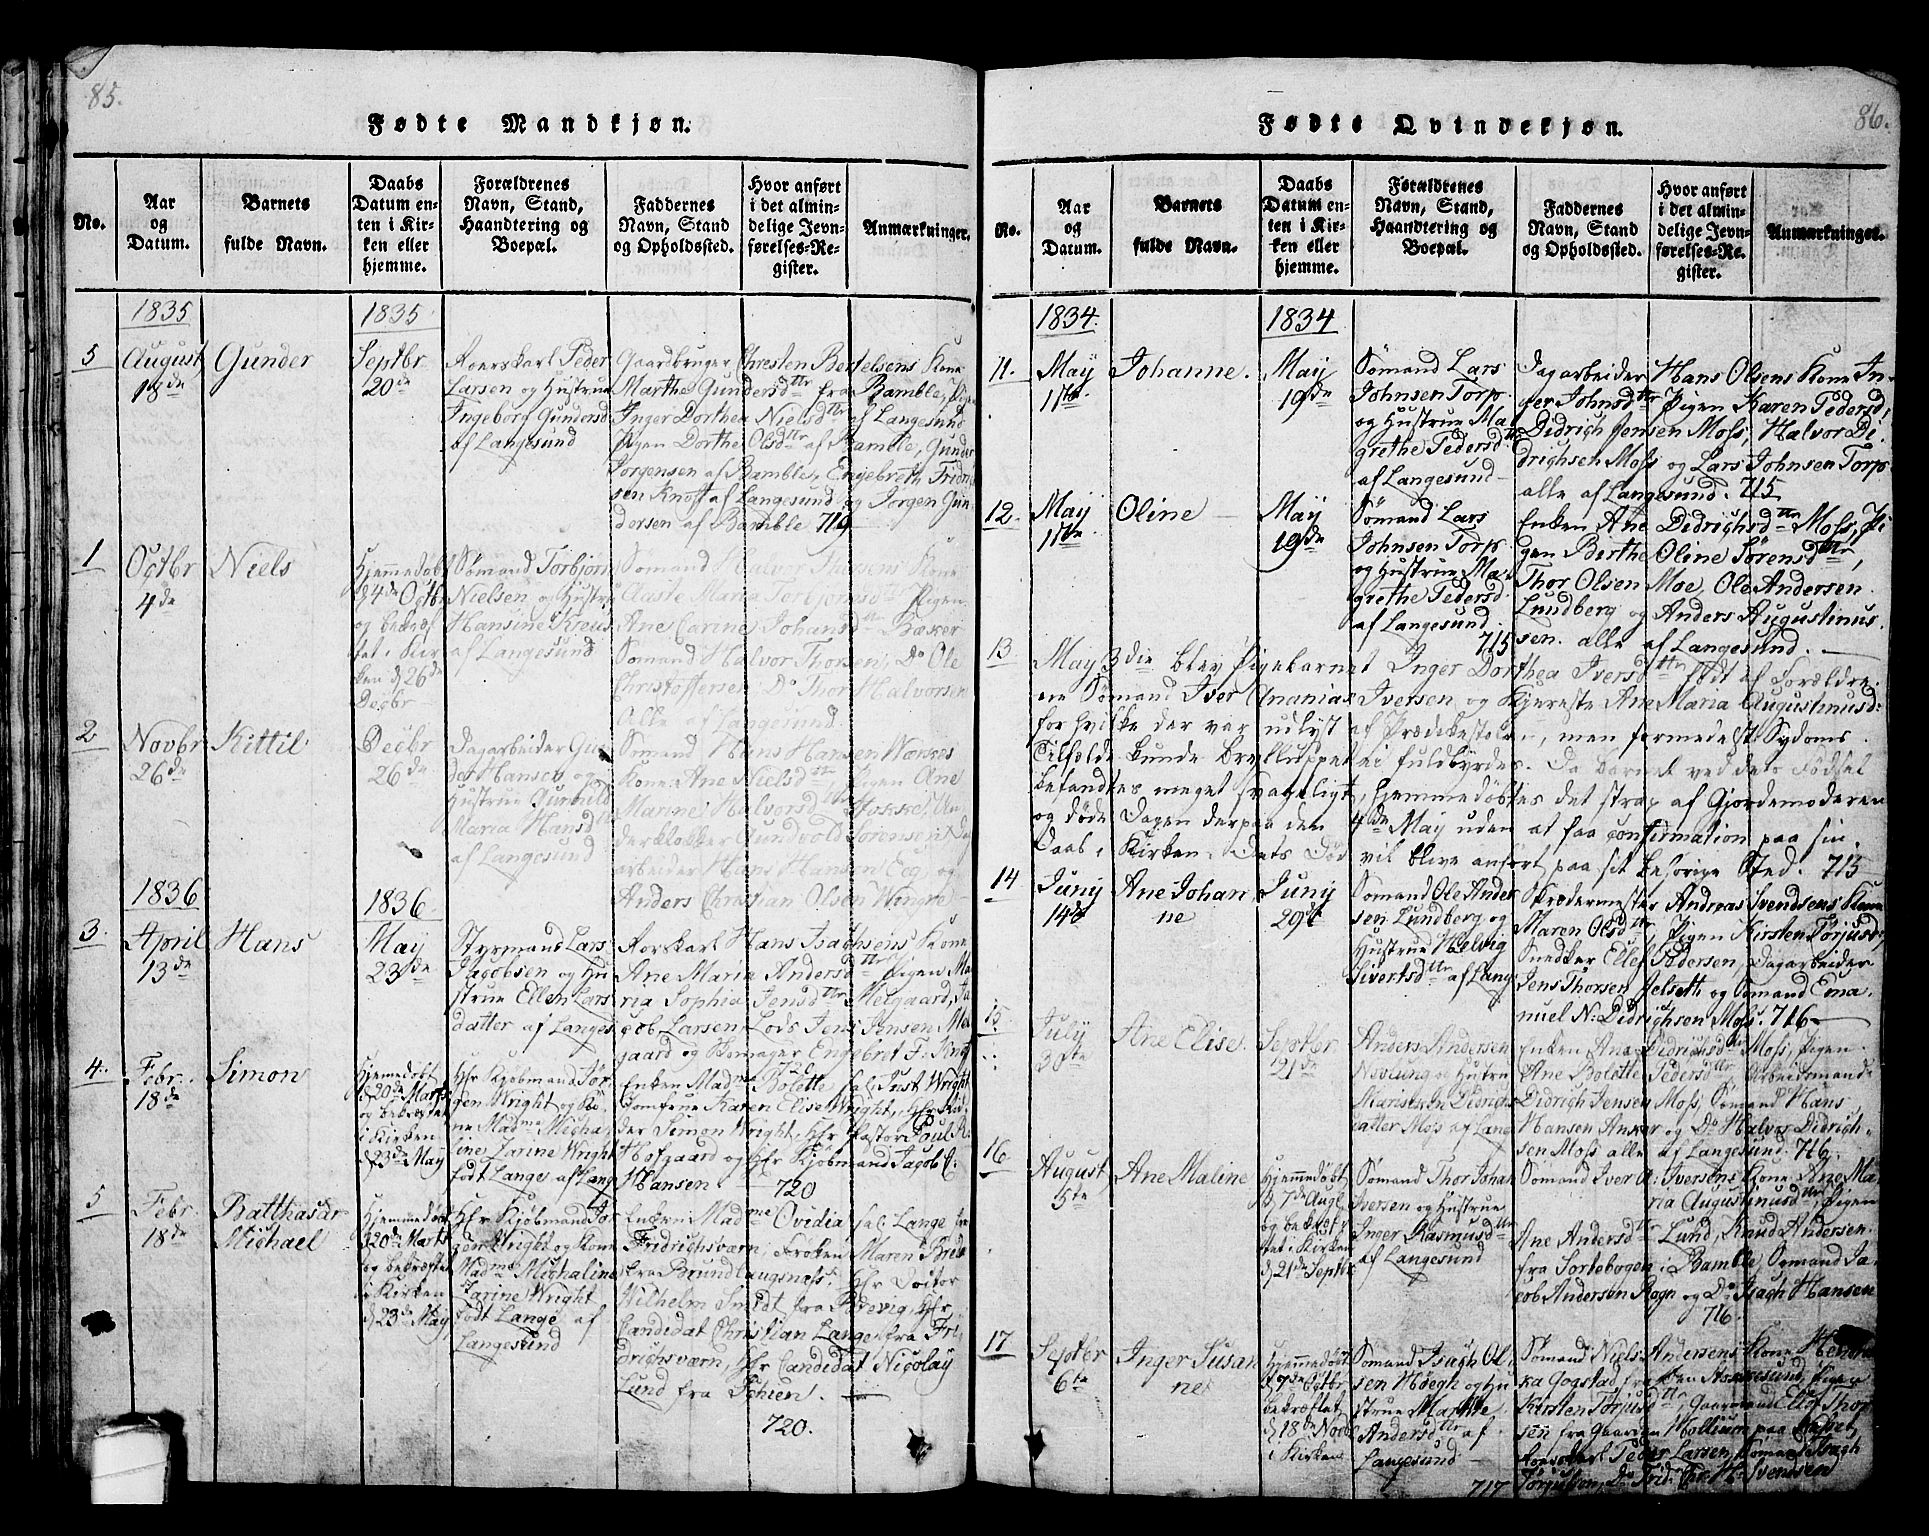 85.
Fødte Mandkjøn.
No.
Aar
og
Datum.
Barnets
fulde Navn.
Daabs
Datum en-
ten i Kir-
ken eller
hjemme.
Forældrenes
Navn, Stand,
Haandtering og
Boepæl.
Faddernes
Navn, Stand
og Opholdssted.
Hvor anført
i det almin-
delige Jevn-
førelses-Re-
gister.
Anmærkninger.
1835
1835
5
August
18de
Gunder
Septbr
20de
Roerskarl Peder
Larsen og Hustrue
Ingeborg Gundersd
af Langesund
Gaardbruger Chresten Bertelsens Kone
Marthe Gundersdttr fra Bamble, Pigen
Inger Dorthea Nielsdttr af Langesund
Pigen Dorthe Olsdttr af Bamble, Gunder
Jorgensen af Bamble, Engebreth Fridri
sen Knoft af Langesund og Jorgen Gun
dersen af Bamble 719
1
Octbr
4de
Niels
Hjemmedøbt
d 4de Octbr
og bekræf
tet i Kir
ken d 26de
Decbr
Sømand Torbjørn
Nielsen og Hustru
Hansine
af Langesund
Sømand Halvor Thorsens Kone
Aaste Maria Torbjørnsdttr Pigen
Ane Carine Johansdttr Bæker
Sømand Halvor Thorsen, Do Ole
Christoffersen Do Thor Halvorsen
Alle af Langesund.
2
Novbr
26de
Kittil
Decbr
26de
Dagarbeider Gun
der Hansen og
Hustrue Gunhild
Maria Hansd
af Langesund
Sømand Hans Hansen
Kone Ane Nielsdttr Pigen Ane
Marine Halvorsdttr
derklokker Gundvold Sørensen, Dag
arbeider Hans Hansen Eeg, og
Anders Christian Olsen Wingre
1836
1836
3.
April
13de
Hans
May
23de
Styrmand Lars
Jacobsen og Hu
strue Ellen Lars
datter af Langes
Roerskarl Hans Isachsens Kone
Ane Maria Andersdttr Pigen Ma
ria Sophia Jensdttr Melgaard, Ja
cob Larsen, Lods Jens Jensen Mel
gaard og Skomager Engebret F. Knof
720
4.
Febr.
18de
Simon
Hjemmedøbt
d 20de Marts
og bekræftet
i Kirken
d 23de May
Hr Kjøbmand Jør
gen Wright og Ko
ne Madme Micha
line Zarine Wright
født Lange af Lang
Enken Madme Bolette sal: Just Wright
Jomfrue Karen Elise Wright, Hr Ri
der Simon Wright, Hr Pastor Paul R.
Hofgaard og Hr Kjøbmand Jacob C:
Hansen 720
5
Febr.
18de
Balthasar
Michael
Hjemmedøbt
d 20de Marts
og bekræftet
i Kirken
d 23de May
Hr Kjøbmand Jør
gen Wright og Kone
Madme Michaline
Zarine Wright
født Lange af
Langesund
Enken Madme Ovidia sal: Lange fra
Fridrichsværn, Frøken Maren Bride
fra Brundlaugsnæss, Hr Doctor
Wilhelm Smidt fra Brevig, Hr
Candidat Christian Lange fra Fri
drichsværn, Hr Candidat Nicolay
Lund fra Schien.
720.
86.
Fødte Qvindekjøn.
No.
Aar
og
Datum.
Barnets
fulde Navn.
Daabs
Datum en-
ten i Kir-
ken eller
hjemme.
Forældrenes
Navn, Stand,
Haandtering og
Boepæl.
Faddernes
Navn, Stand
og Opholdssted.
Hvor anført
i det almin-
delige Jevn-
førelses-Re-
gister.
Anmærkninger.
1834.
1834
11.
May
11te
Johanne.
May
19de
Sømand Lars
Johnsen Torp
og Hustrue Ma
grethe Pedersdttr
af Langesund
Dagarbeider Hans Olsens Kone In
ger Johnsdttr Pigen Karen Pedersd,
Didrich Jensen Moss, Halvor Di
drichsen Moss og Lars Johnsen Torp
alle af Langesund. 715
12.
May
11te
Oline
May
19de
Sømand Lars
Johnsen Torp
og Hustrue Ma
grethe Pedersd
af Langesund.
715
Enken Ane Didrichsdttr Moss, Pi
gen Berthe Oline Sørensdttr,
Thor Olsen Moe, Ole Andersen
Lundberg og Anders Augustinus
sen. alle af Langesund.
13.
May 3die blev Pigebarnet Inger Dorthea Iversdttr født af Forældre
ne Sømand Iver Ananias Iversen og Kjereste Ane Maria Augustinusd:
for hvilke der var udlyst af Prædikestolen, men formedelst Sygdoms
Tilfælde kunde Brylluppet ei fuldbyrdes. Da barnet ved dets Fødsel
befandtes meget svageligt, hjemmedøbtes det strax af Gjordemoderen
og døde Dagen derpaa den 4de May uden at faa confirmation paa sin
Daab i Kirken. Dets Død vil blive anført paa sit behørige Sted. 715
14
Juny
14de
Ane Johan
ne
Juny
29de
Sømand Ole Ander
sen Lundberg og
Hustrue Helvig
Sivertsdttr af Lang
Skredermester Andreas Svendsens Kone
Maren Olsdttr Pigen Kirsten Torjusd,
Snedker Ellef Pedersen, Dagarbeider
Jens Thorsen Jelseth og Sømand Ema
nuel N: Didrichsen Moss. 716
15.
July
30te
Ane Elise.
Septbr
21de
Anders Andersen
Novlung og Hustru
Mariken Didrichs
datter Moss af Lange
Enken Ane Didrichsdttr Moss, Pigen
Ane Bolette Pedersdttr Arbeidsmand
Didrich Jensen Moss, Sømand Hans
Hansen Anker og Do Halvor Didrich
sen Moss alle af Langesund. 716.
16.
August
5te
Ane Maline
Hjemmedøbt
d 7de Augl
og bekræf
tet i Kirken
d 21de Septbr
Sømand Thor Johan
Iversen og Hustrue
Inger Rasmusdttr
af Langesund
Sømand Iver A: Iversens Kone Ane Ma
ria Augustinusdttr, Pigen
Ane Andersdttr Lund, Knud Andersen
fra Sortebogen i Bamble, Sømand Ja
cob Andersen Rogn og Do Isach Hansen
716.
17
Septbr
6te
Inger Susan
ne
Hjemmedøbt
d 7de Octbr
bekræftet
d 18de Novbr
i Kirken
Sømand Isach Ol
sen Høegh og Hu
strue Marthe
Andersdttr af
Langesund
Sømand Niels Andersens Kone
ka Gogstad, fra Pigen
Kirsten Torjusdttr, Gaarmand Ellef Thor
sen fra Gaarden
Roerskarl Peder Larsen, Sømand Isach
717 Svendsen